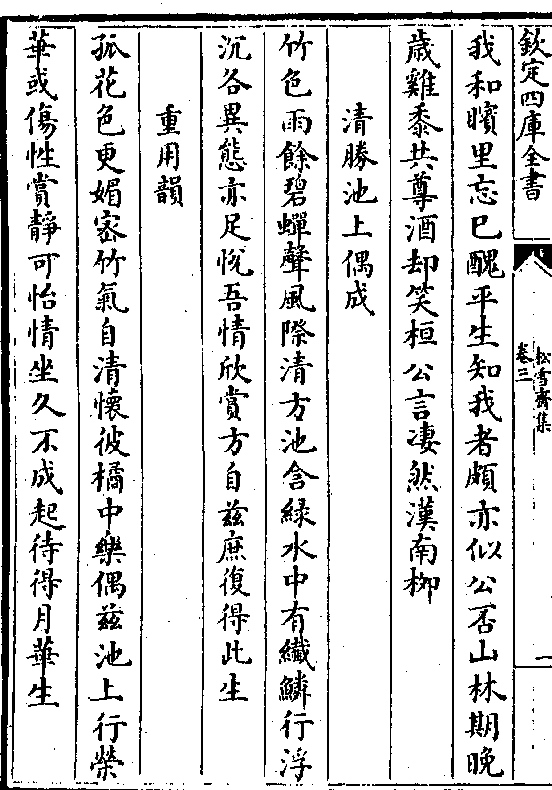 欽定四庫全書
松雪齋集
卷三
一
我和矉里忘已醜平生知我者頗亦似公否山林期晚
歳雞黍共尊酒却笑桓公言凄然漢南柳
清勝池上偶成
竹色雨餘碧蟬聲風際清方池含緑水中有纖鱗行浮
沉各異態亦足悅吾情欣賞方自兹庶復得此生
重用韻
孤花色更媚宻竹氣自清懷彼橘中樂偶兹池上行榮
華或傷性賞靜可怡情坐久不成起待得月華生